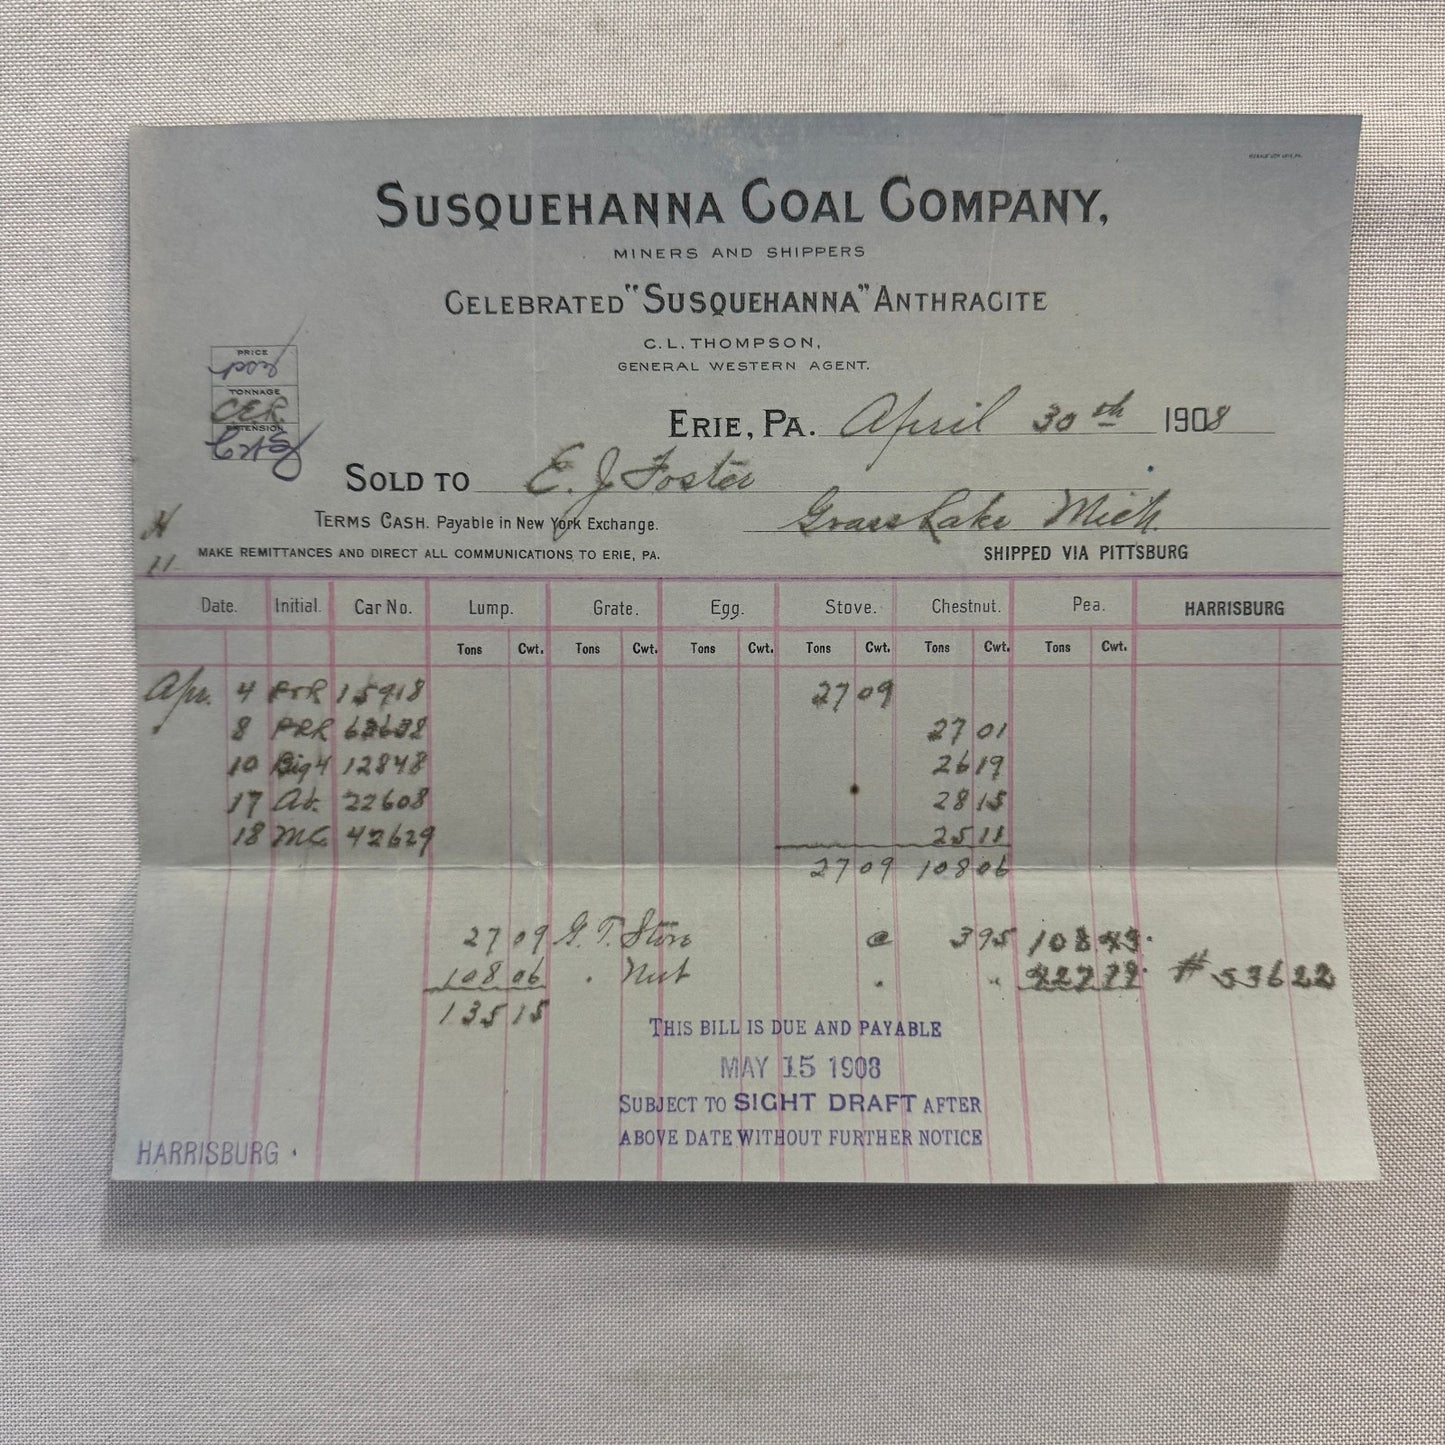 SUSQUEHANNA COAL COMPANY,
MINERS AND SHIPPERS
CELEBRATED "SUSQUEHANNA" ANTHRACITE
C. L. THOMPSON,
GENERAL WESTERN AGENT.
PRICE
TONNAGE
CER
EXTENSION
ERIE, PA. April 30th 1908
SOLD TO E. J. Foster
TERMS CASH. Payable in New York Exchange. Grass Lake Mich.
MAKE REMITTANCES AND DIRECT ALL COMMUNICATIONS TO ERIE, PA. SHIPPED VIA PITTSBURG
Date. Initial. Car No. Lump. Grate. Egg. Stove. Chestnut. Pea. HARRISBURG
Tons Cwt. Tons Cwt. Tons Cwt. Tons Cwt. Tons Cwt. Tons Cwt.
Apr. 4 15918 27 09
8 PRR 27 01
10 Big 4 12848 26 19
17 22608 28 15
18 MC 42629 25 11
27 09 108 06
27 09 G. T. Stove @ 395 108
108 06 . Nut . " # 536 22
135 15
THIS BILL IS DUE AND PAYABLE
MAY 15 1908
SUBJECT TO SIGHT DRAFT AFTER
ABOVE DATE WITHOUT FURTHER NOTICE
HARRISBURG